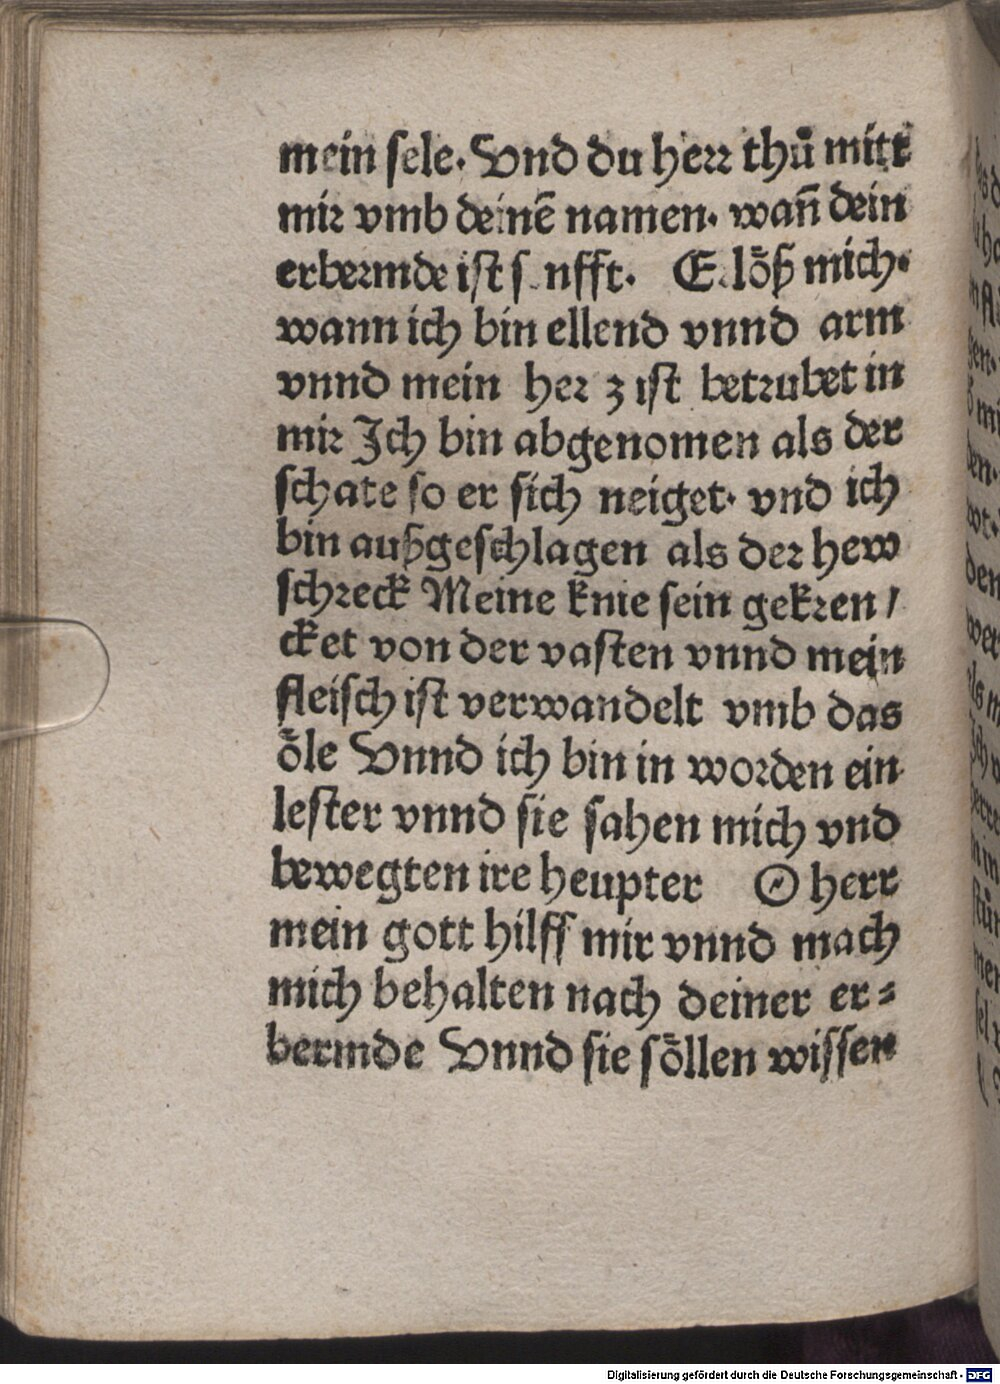 mein sele. Vnd du herr thů mitt
mir vmb deinē namen. wañ dein
erbermde ist s nfft. E lo᷑ß mich.
wann ich bin ellend vnnd arm
vnnd mein her z ist betrubet in
mir Jch bin abgenomen als der
schate so er sich neiget. vnd ich
bin außgeschlagen als der hew
schreck Meine knie sein gekren /
cket von der vasten vnnd mein
fleisch ist verwandelt vmb das
o᷑le Vnnd ich bin in worden ein
lester vnnd sie sahen mich vnd
bewegten ire heupter O herr
mein gott hilff mir vnnd mach
mich behalten nach deiner er⸗
bermde Vnnd sie so᷑llen wissen
Digitalisierung gefördert durch die Deutsche Forschungsgemeinschaft - DFG